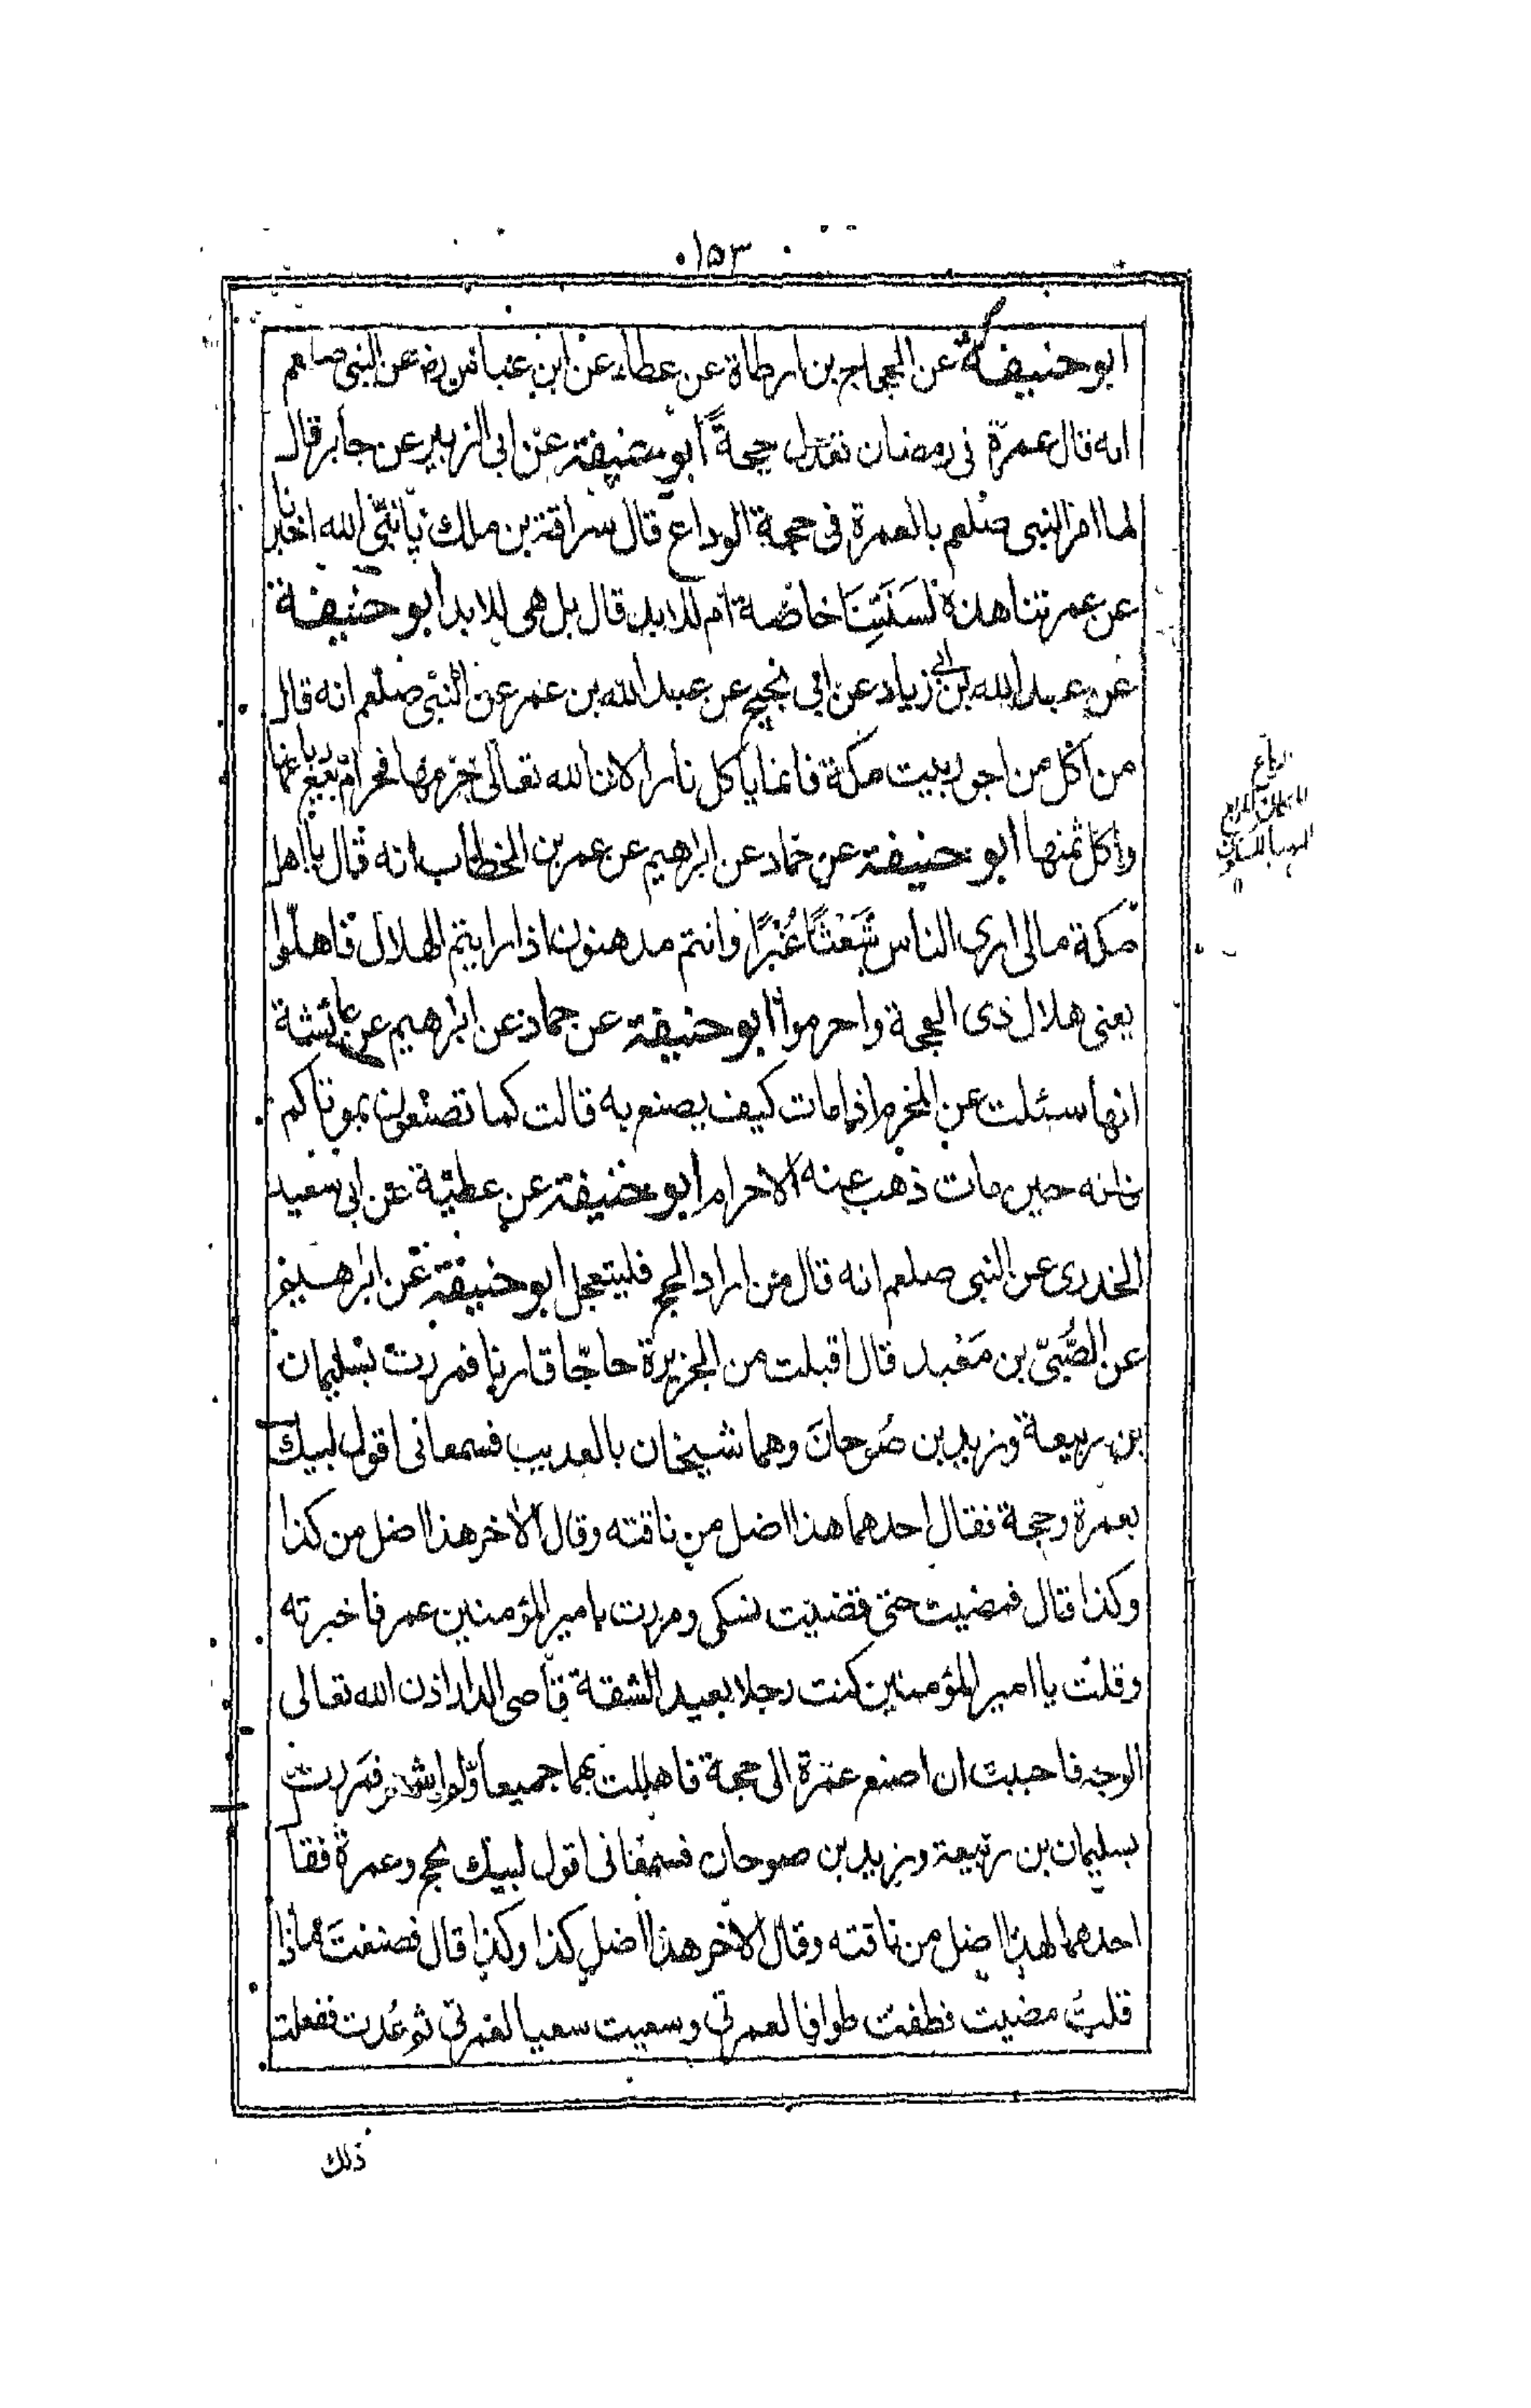 ١٥٣
ابو حنيفة عن الحجاج بن ارطاة عن عطاء عن ابن عباس رضه عن النبى صلعم
انه قال عمرة فى رمضان تعدل حجةً ابو حنيفة عن ابى الزبير عن جابر قال
لما امر النبى صلعم بالعمرة فى حجة الوداع قال سراقة بن ملك يا نبىّ الله اخبرنا
عن عمرتنا هذه لسَنَتِنَا خاصّة ام للابد قال بل هى للابد ابو حنيفة
عن عبد الله بن ابى زياد عن ابى نجيح عن عبد الله بن عمر عن النبى صلعم انه قال
من اكل من اجور بيت مكة فانما ياكل نارا لان الله تعالى حرمها فحرام بيع رباعها
واكل ثمنها ابو حنيفة عن حماد عن ابرهيم عن عمر بن الخطاب انه قال يا اهل
مكة مالى ارى الناس شَعْثًا غُبْرًا وانتم مدهنون اذا رايتم الهلال فاهلّوا
يعنى هلال ذى الحجة واحرموا ابو حنيفة عن حماد عن ابرهيم عن عائشة
انها سئلت عن المحرم اذا مات كيف يصنع به قالت كما تصنعون بموتاكم
فانه حين مات ذهب عنه الاحرام ابو حنيفة عن عطيّة عن ابى سعيد
الخدرى عن النبى صلعم انه قال من اراد الحج فليتعجل ابو حنيفة عن ابرهيم
عن الصُّبَىّ بن مَعْبد قال اقبلت من الجزيرة حاجّا قارنا فمررت بسليمان
بن ربيعة وزيد بن صُوحانَ وهما شيخان بالعديب فسمعانى اقول لبيك
بعمرة وحجة فقال احدهما هذا اضل من ناقته وقال الاخر هذا اضل من كذا
وكذا قال فمضيت حتى قضيت نسكى ومررت بامير المؤمنين عمر فاخبرته
وقلت يا امير المؤمنين كنت رجلا بعيد الشقة قاصى الدار اذن الله تعالى
الوجه فاحببت ان اصنع عمرة الى حجة فاهللت بهما جميعا فمَررت
بسليمان بن ربيعة وزيد بن صوحان فسمعانى اقول لبيك بحج وعمرة فقا
احدهما لهذا اضل من ناقته وقال الاخر هذا اضل كذا وكذا قال فصنعتَ ماذا
قلتُ مضيت فطفت طوافا لعمرتى وسعيت سعيا لعمرتى ثم عُدت ففعلت
ذلك